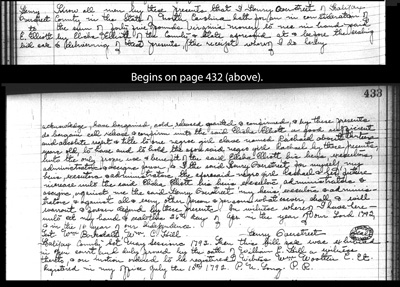 Henry Know all men by these presents that I Henry Overstreet of Halifax
Overstreet County in the State of North Carolina hath for & in consideration of
to the sum of forty five pounds Virginia money to me in hand paid
E. Elliott by Elisha Elliott of the County & State aforesaid at & before the sealing
bill sale & delivering of these presents (the receipt whereof I do hereby
Begins on page 432 (above).
433
acknowledge) have bargained, sold, released, granted & confirmed, & by these presents
do bargain sell release & confirm unto the said Elisha Elliott as good sufficient
and absolute right & title to one negroe girl slave named Rachael about thirteen
years old, to have and to hold the aforesaid negroe girl Rachael by these presents
but the only proper use & benefit of the said Elisha Elliott his heirs executors,
administrators & assigns forever. And I the said Henry Overstreet for myself my
heirs, executors & administrators, the aforesaid negroe girl Rachael & her future
increase unto the said Elisha Elliott his heirs executors administrators &
assigns against me the said Henry Overstreet my heirs executors & adminis-
trators & against all & every other person & persons whatsoever, shall & will
warrant & forever defend by these presents. In witness whereof I have here-
unto set my hand & seal this 26th day of in the year of our Lord 1792,
& in the 10 year of our Independence.
Test. Wm. Barksdale, Wm. E. Hill Henry Overstreet
Halifax County Sct. May Session 1793. Then this bill sale was exhibited
in open court and duly proved by the oath of William E. Hill a witness
thereto & on motion ordered to be registered. Witness Wm. Wootten C. Ct.
Registered in my office July the 10th 1793. P. R.